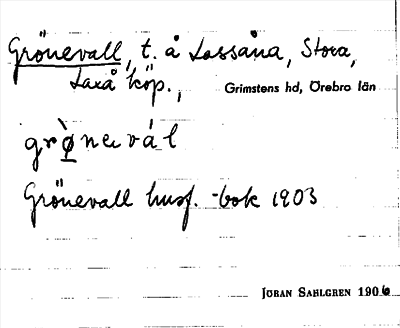 Grönevall, t. å Lassåna, Stora,
Laxå köp., Grimstens hd, Örebro län
grø̀nevál
Grönevall husf.-bok 1903
JÖRAN SAHLGREN 1906